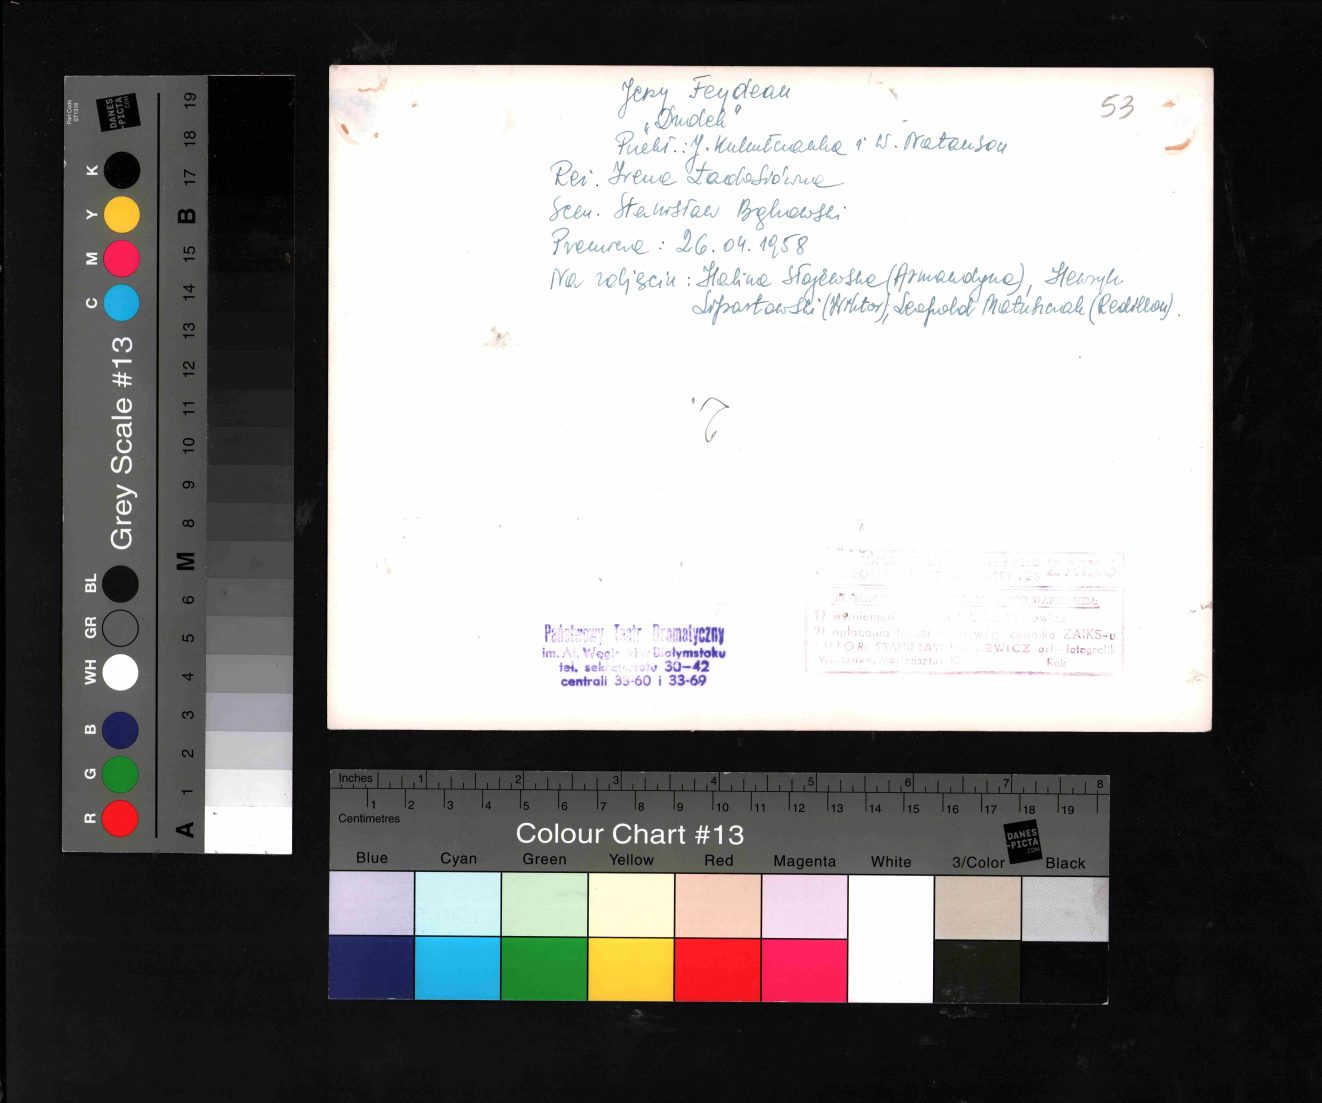 53
Jerzy Feydeau
„Dudek"
Przekł.: J. i W. Natanson
Reż. Irena Ładosiówna
Scen. Stanisław Bąkowski
Premiera: 26.04.1958
Na zdjęciu: Halina Słojewska (Armandyna), Henryk
Łopartowski (Wiktor), Leopold Matuszczak (Redillon).
Państwowy Teatr Dramatyczny
im. Al. Węgierki w Białymstoku
tel. sekretariatu 30-42
centrali 33-60 i 33-69
ZAIKS
1) wymienienia
2) opłacenia cennika ZAIKS-u
AUTOR: STANISŁAW art.-fotografik
Warszawa,
Rok
Part Code
ST1316
DANES
-PICTA
.COM
Grey Scale #13
R G B WH GR BL C M Y K
A 1 2 3 4 5 6 M 8 9 10 11 12 13 14 15 B 17 18 19
Inches 1 2 3 4 5 6 7 8
1 2 3 4 5 6 7 8 9 10 11 12 13 14 15 16 17 18 19
Centimetres
Colour Chart #13
DANES
-PICTA
.COM
Blue Cyan Green Yellow Red Magenta White 3/Color Black